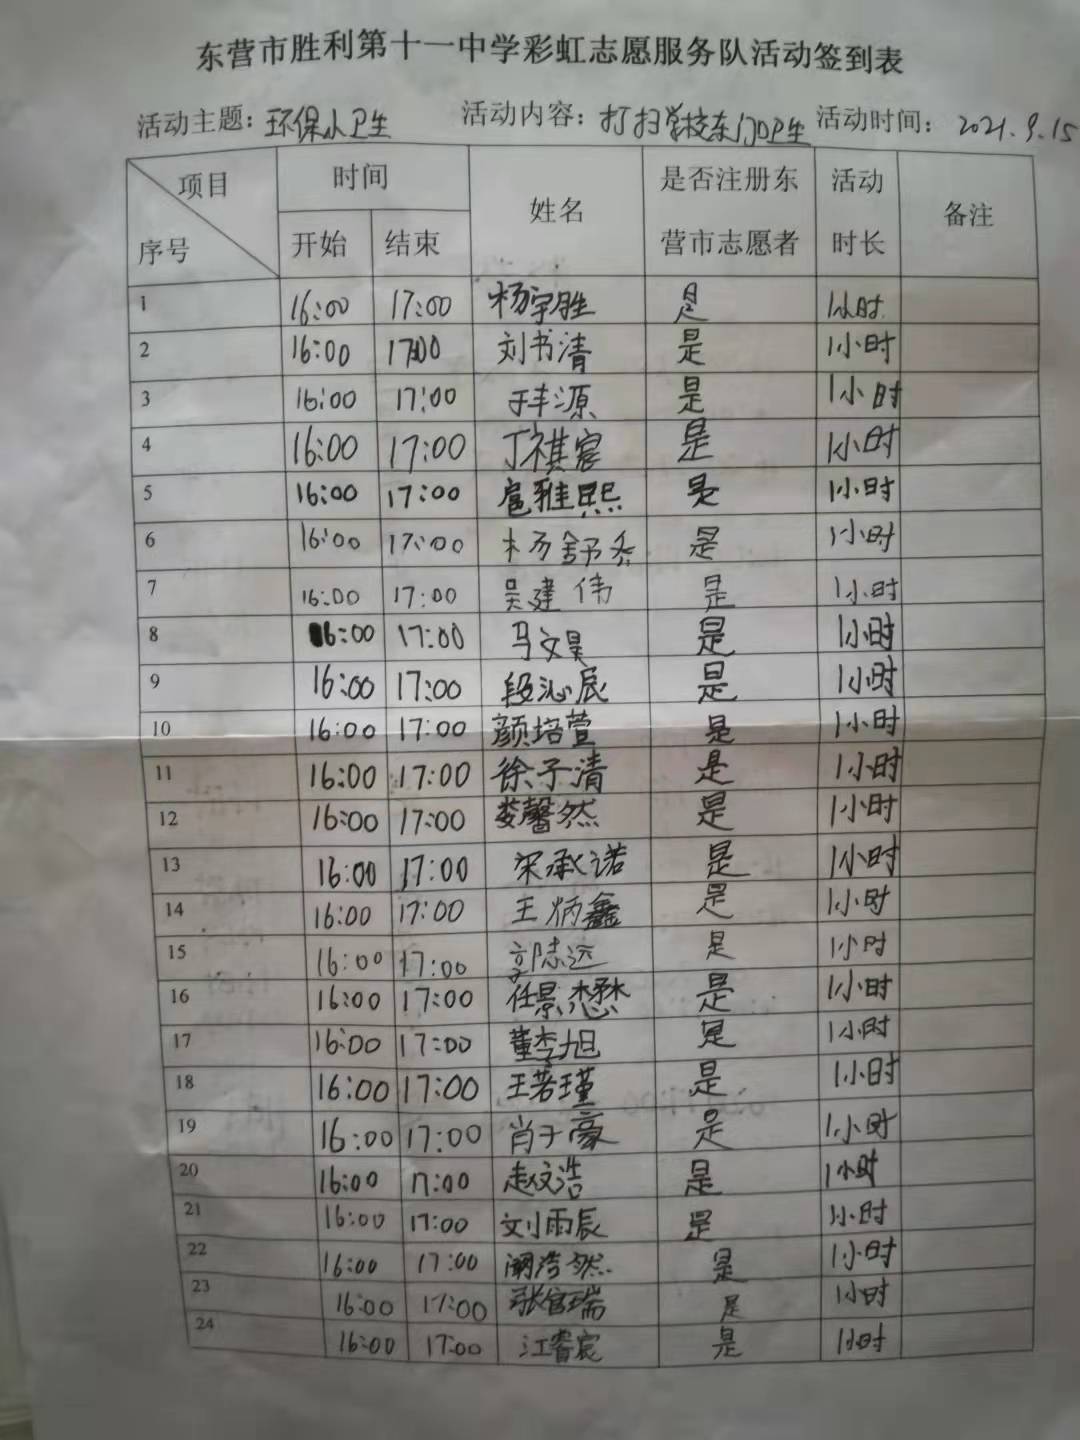 东营市胜利第十一中学彩虹志愿服务队活动签到表
活动主题：环保小卫生 活动内容：打扫学校东门口卫生 活动时间：2021.9.15
项目 时间 姓名 是否注册东 活动 备注
序号 开始 结束 营市志愿者 时长
1 16:00 17:00 杨宇胜 是 1小时
2 16:00 17:00 刘书清 是 1小时
3 16:00 17:00 于丰源 是 1小时
4 16:00 17:00 丁祺宸 是 1小时
5 16:00 17:00 扈雅熙 是 1小时
6 16:00 17:00 杨舒 是 1小时
7 16:00 17:00 吴建伟 是 1小时
8 16:00 17:00 马文昊 是 1小时
9 16:00 17:00 段沁辰 是 1小时
10 16:00 17:00 颜培萱 是 1小时
11 16:00 17:00 徐子清 是 1小时
12 16:00 17:00 娄馨然 是 1小时
13 16:00 17:00 宋承诺 是 1小时
14 16:00 17:00 王炳鑫 是 1小时
15 16:00 17:00 志远 是 1小时
16 16:00 17:00 任景懋 是 1小时
17 16:00 17:00 董李旭 是 1小时
18 16:00 17:00 王若瑾 是 1小时
19 16:00 17:00 肖子豪 是 1小时
20 16:00 17:00 赵文浩 是 1小时
21 16:00 17:00 刘雨辰 是 1小时
22 16:00 17:00 阚浩然 是 1小时
23 16:00 17:00 张官瑞 是 1小时
24 16:00 17:00 江睿宸 是 1小时